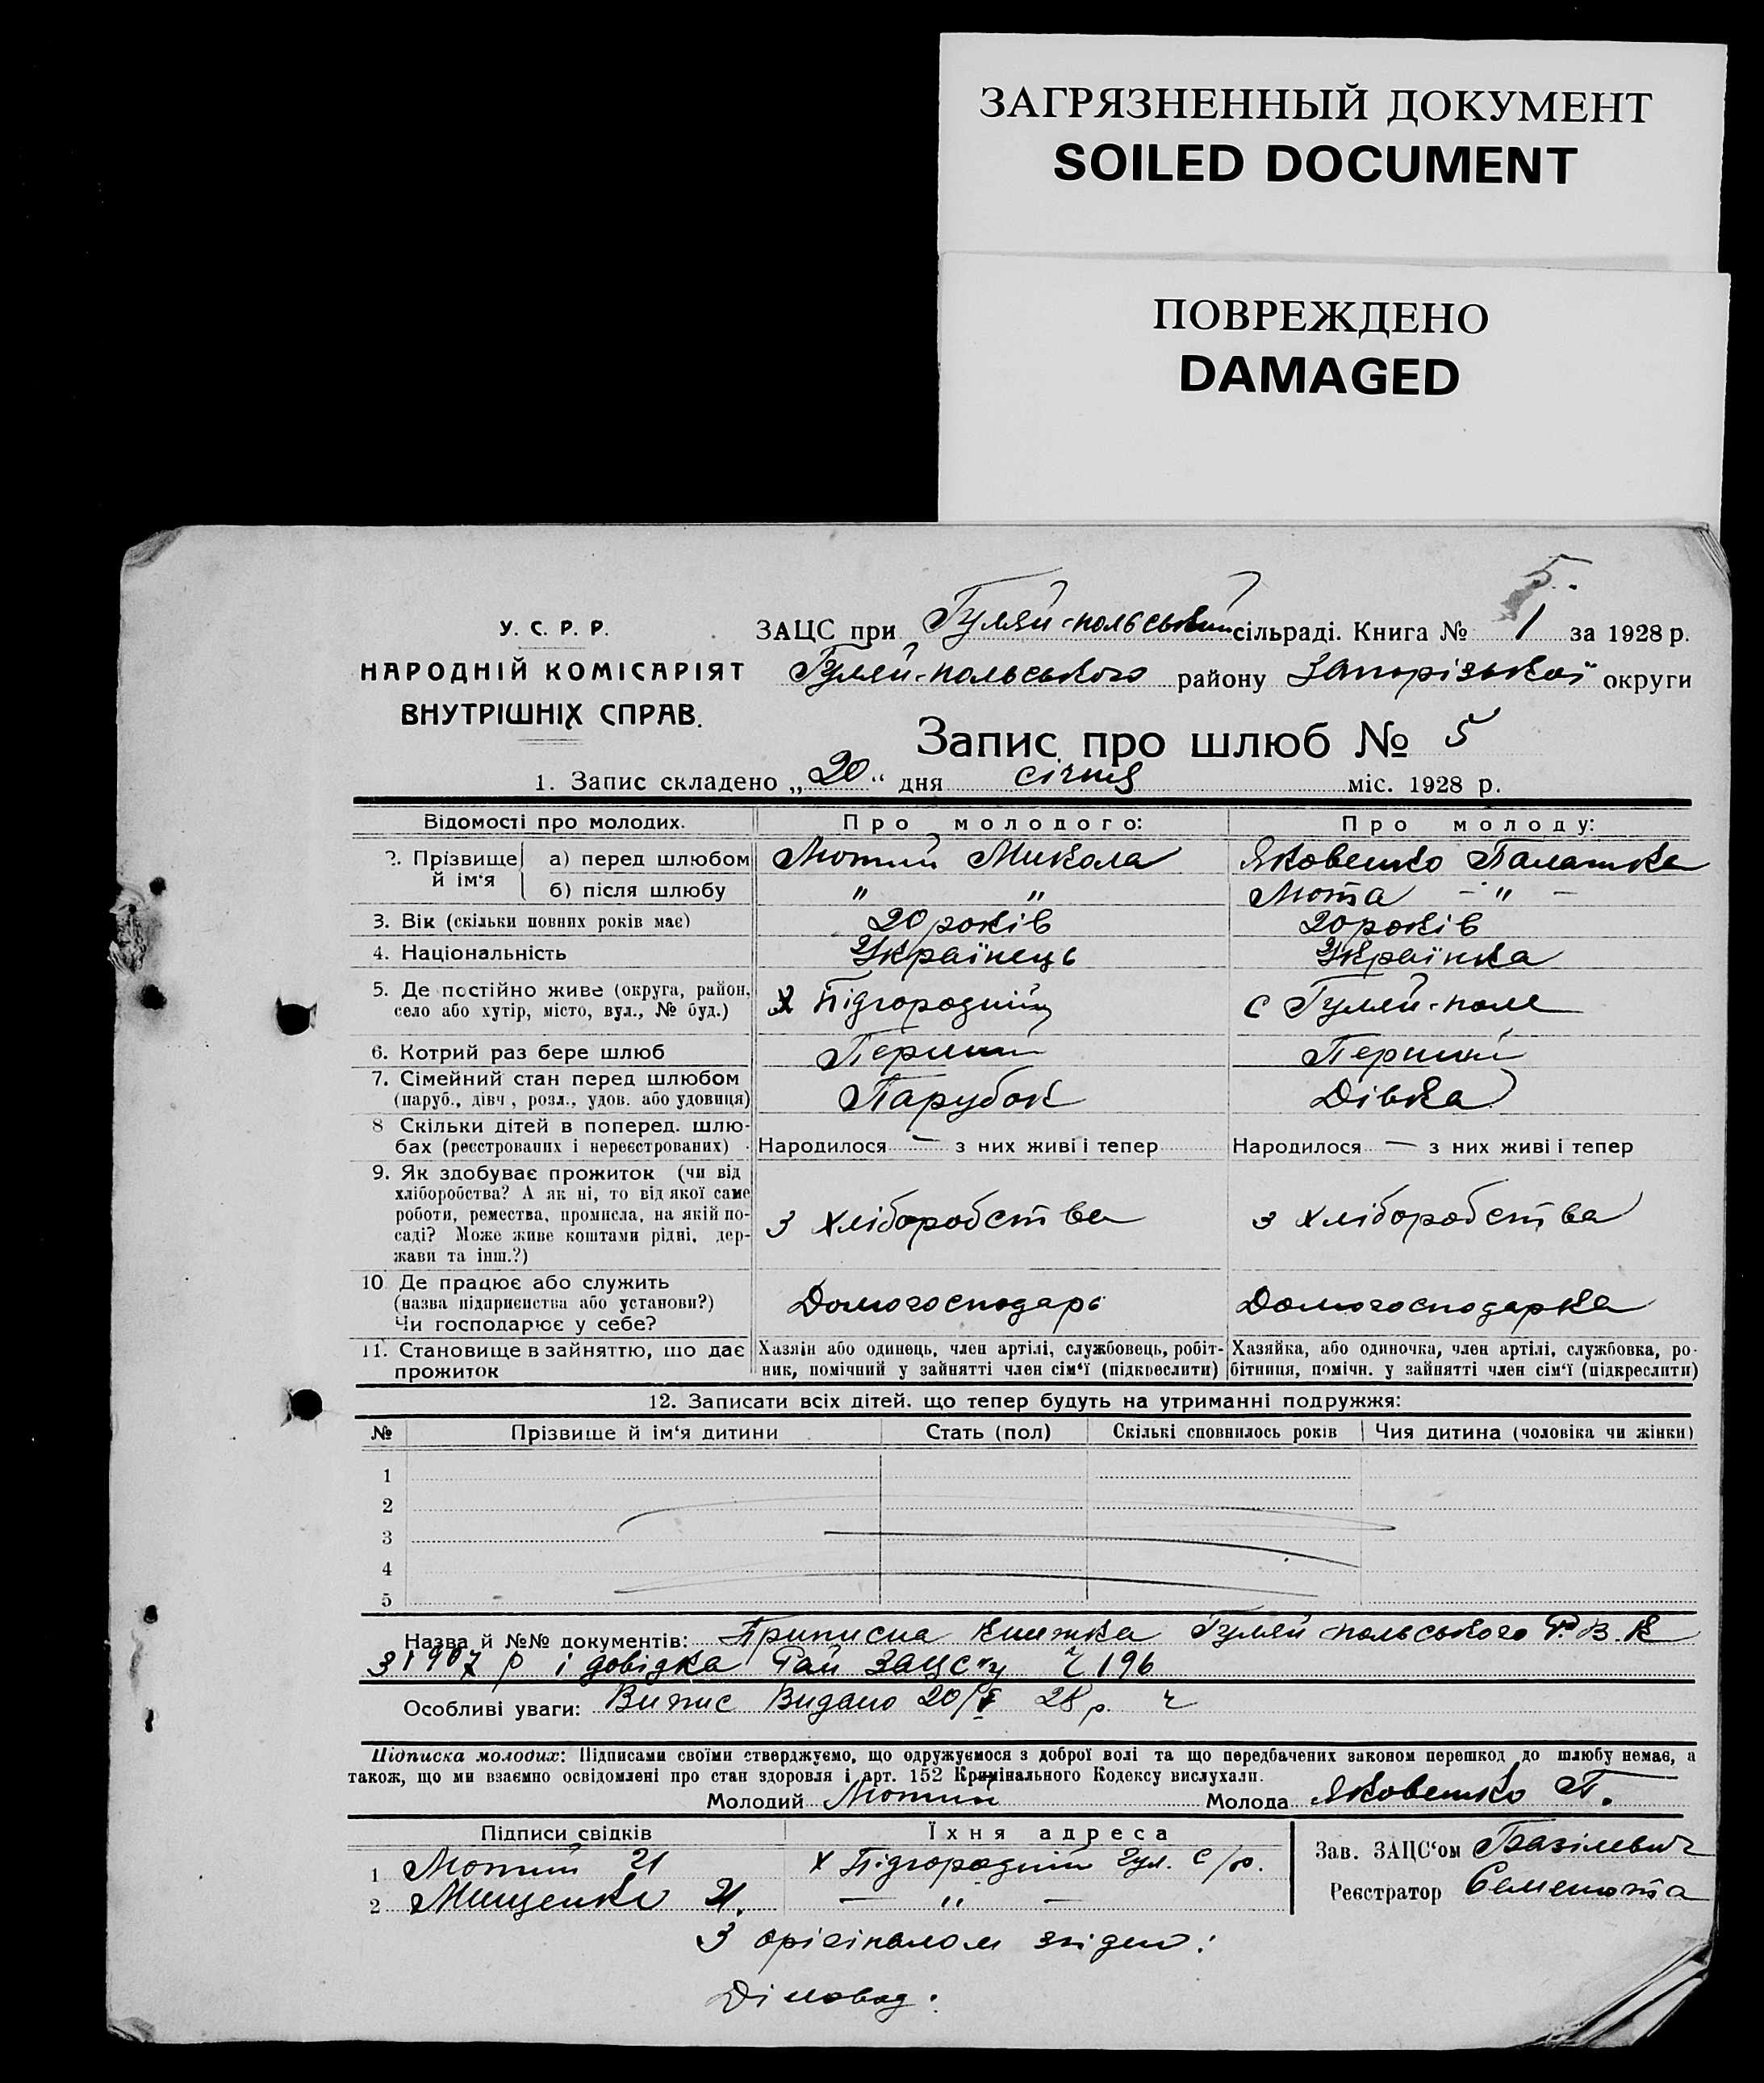 ЗАГРЯЗНЕННЫЙ ДОКУМЕНТ
SOILED DOCUMENT
ПОВРЕЖДЕНО
DAMAGED
5.
У. С. Р. Р.
НАРОДНІЙ КОМІСАРІЯТ
ВНУТРІШНІХ СПРАВ.
ЗАЦС при Гуляй-польській сільраді. Книга № 1 за 1928 р.
Гуляй-польського району Запорізької округи
Запис про шлюб № 5
1. Запис складено „20" дня січня міс. 1928 р.
Відомості про молодих. Про молодого: Про молоду:
2. Прізвище й ім'я а) перед шлюбом Мотий Микола Яковенко Палажка
б) після шлюбу " " Мота - " -
3. Вік (скільки повних років має) 20 років 20 років
4. Національність Українець Українка
5. Де постійно живе (округа, район, село або хутір, місто, вул., № буд.) х Підгородній с Гуляй-поле
6. Котрий раз бере шлюб Перший Перший
7. Сімейний стан перед шлюбом (паруб., дівч., розл., удов. або удовиця) Парубок Дівка
8 Скільки дітей в поперед. шлюбах (реєстрованих і нереєстрованих) Народилося — з них живі і тепер Народилося — з них живі і тепер
9. Як здобуває прожиток (чи від хліборобства? А як ні, то від якої саме роботи, ремества, промисла, на якій посаді? Може живе коштами рідні, держави та інш.?) з хліборобства з хліборобства
10 Де працює або служить (назва підприємства або установи?) Чи господарює у себе? Домогосподарь Домогосподарка
11. Становище в зайняттю, що дає прожиток Хазяїн або одинець, член артілі, службовець, робітник, помічний у зайнятті член сім'ї (підкреслити) Хазяйка, або одиночка, член артілі, службовка, робітниця, помічн. у зайнятті член сім'ї (підкреслити)
12. Записати всіх дітей, що тепер будуть на утриманні подружжя:
№ Прізвище й ім'я дитини Стать (пол) Скількі сповнилось років Чия дитина (чоловіка чи жінки)
1
2
3
4
5
Назва й №№ документів: Приписна книжка Гуляй польського Р.В.К
з 1907 р і довідка Рай ЗАЦСу ч 196
Особливі уваги: Випис Видано 20/I 28 р. ч
Підписка молодих: Підписами своїми стверджуємо, що одружуємося з доброї волі та що передбачених законом перешкод до шлюбу немає, а
також, що ми взаємно освідомлені про стан здоровля і арт. 152 Кримінального Кодексу вислухали.
Молодий Мотий Молода Яковенко П.
Підписи свідків Їхня адреса
1 Мотий И х Підгородній Гул. с/р.
2 Мищенко И. — " —
Зав. ЗАЦС'ом Базілевич
Реєстратор Семенюта
З орігіналом згідно:
Діловод: